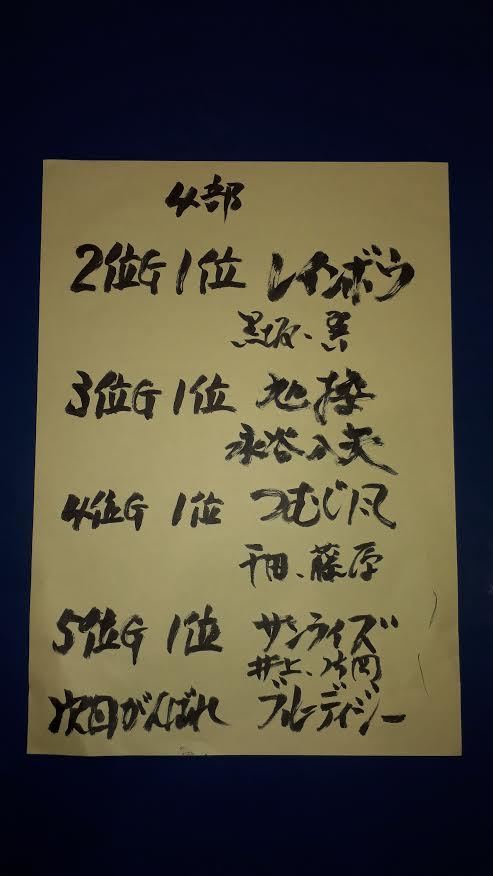 4部
2位G 1位 レインボウ
黒坂、巽
3位G 1位
永谷
4位G 1位 つむじ風
千田、藤原
5位G 1位 サンライズ
井上、片岡
次回がんばれ ブルーデイジー